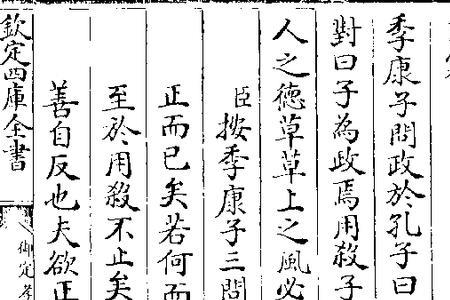 季康子問政於孔子曰
對曰子為政焉用殺子
人之徳草草上之風必
臣按季康子三問
正而已矣若何而
至於用殺不止矣
善自反也夫欲正
欽定四庫全書
御定孝